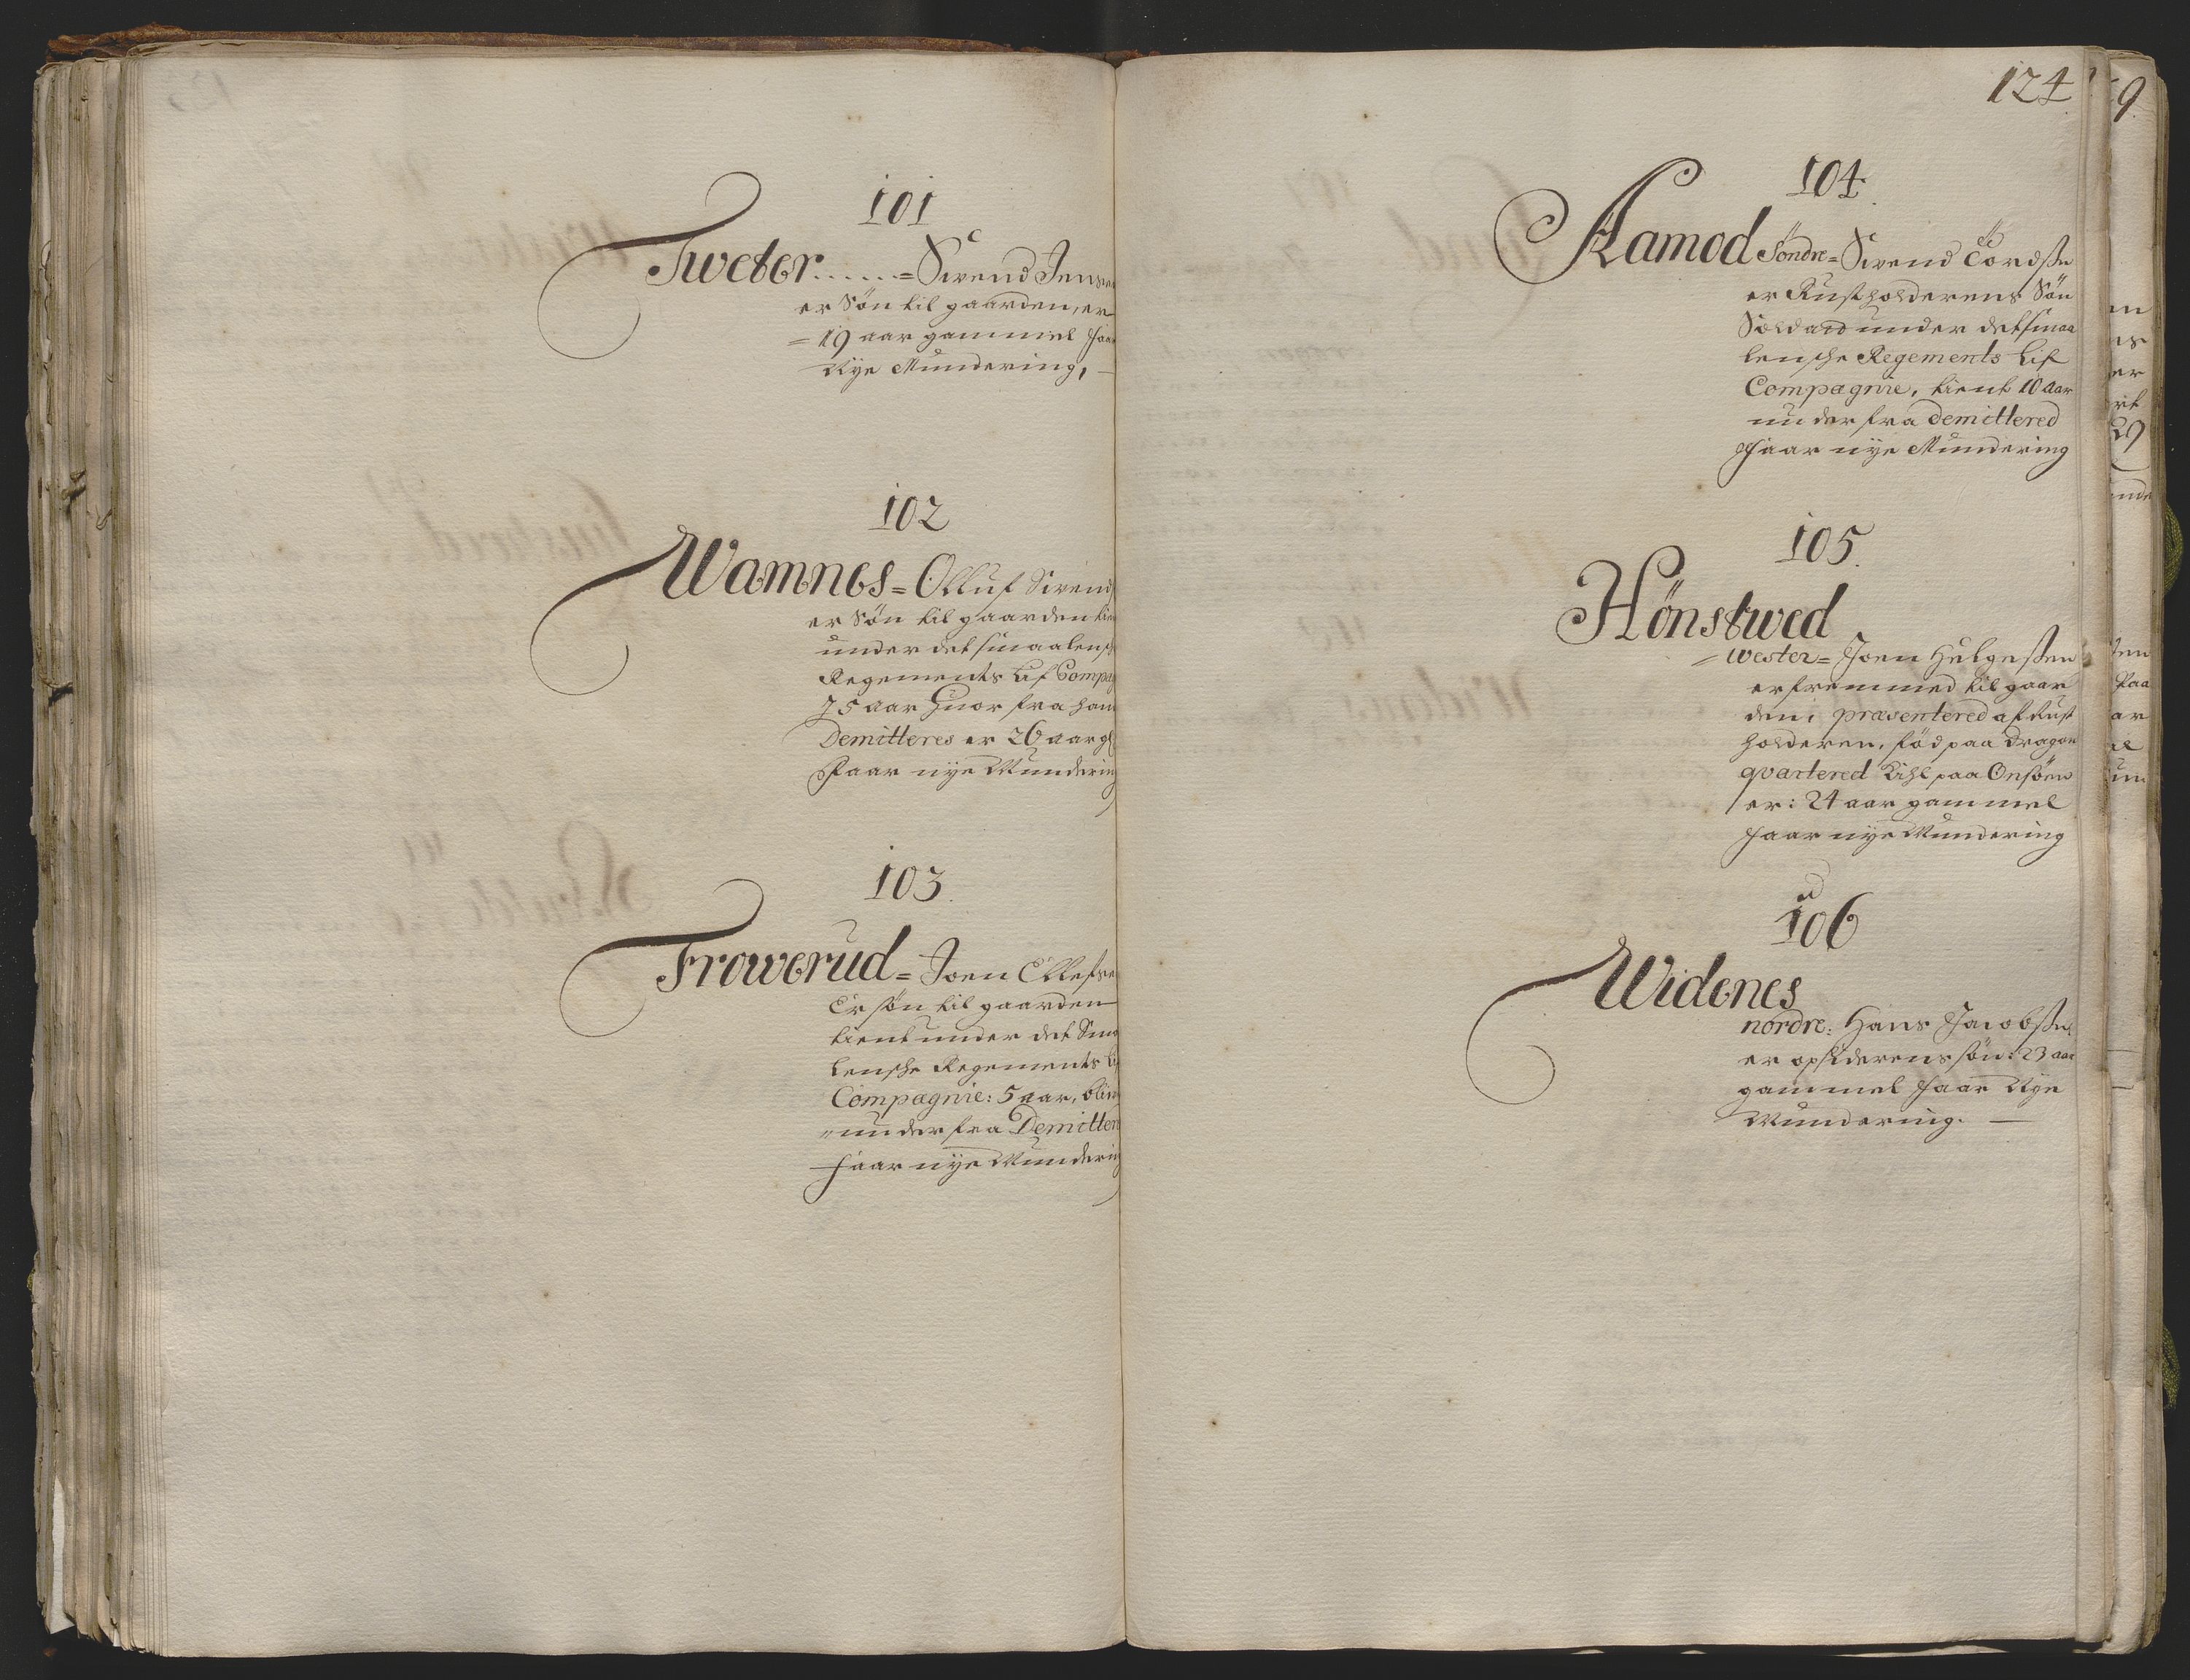 101
Tweter......= Swend Jens
er Søn til gaarden, er
= 19 aar gammel faar
Nye Mundering,
102
Wamnes = Olluf Swend
er Søn til gaarden tien
under det smaalensch
Regements Lif Compag
75 aar huor fra hand
Demitteres er 26 aar gl
Faar nye Mundering
103.
Frowerud = Joen Ellefse
Er søn til gaarden
tient under det Sma
lensche Regements Lif
Compagnie: 5 aar, blin
nu der fra Demitter
faar nye Mundering
124
104.
Aamod Söndre = Swend Tordsße
er Rustholderens Søn
Soldat under det smaa
lensche Regements Lif
Compagnie, tient 10 aar
nu der fra demittered
Faar nye Mundering
105.
Hönstwed
= wester = Joen Helgeßen
er fremmed til gaar
den, præsentered af Rust
holderen, föd paa Dragon
qvartered Kihl paa Onsöen
er: 24 aar gammel
Faar nye Mundering
106
Widenes
nordre: Hans Jacobßen
er opsiderens søn: 23 aar
gammel faar Nye
Mundering.